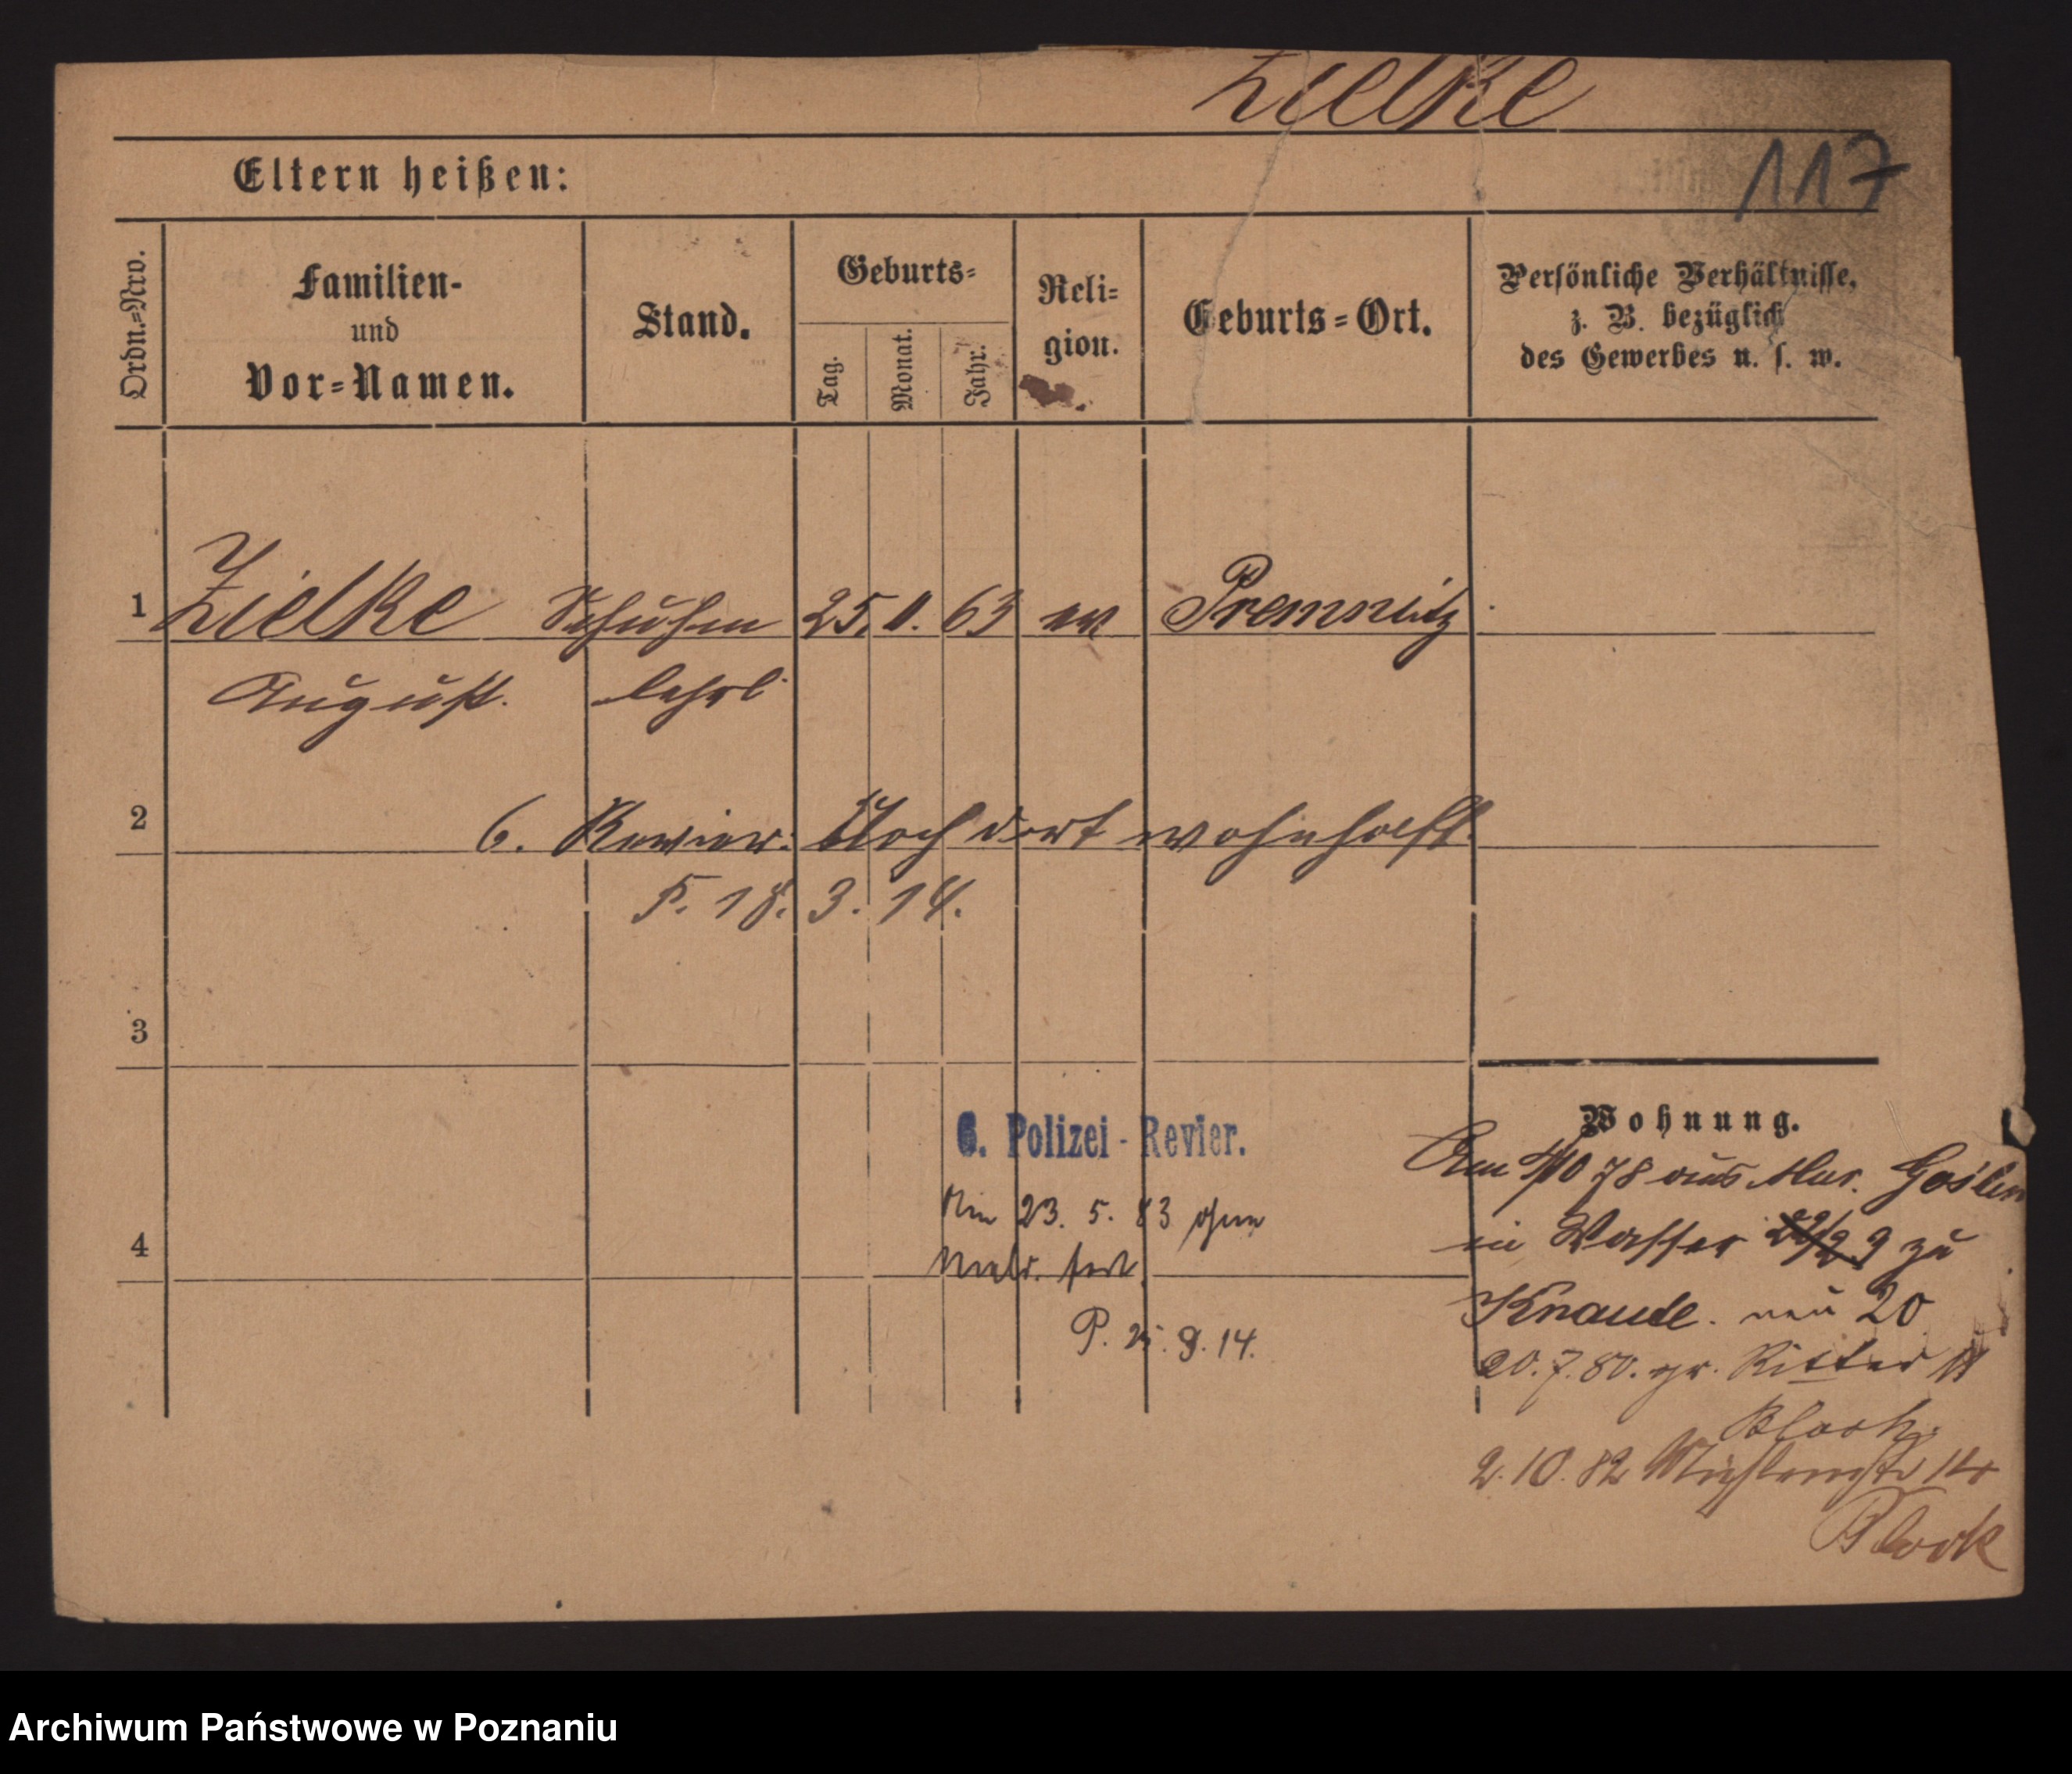 Zielke
117
Eltern heißen:
Ordn.=Nro.
Familien-
und
Vor=Namen.
Stand.
Geburts=
Tag.
Monat.
Jahr.
Reli=
gion.
Geburts=Ort.
Persönliche Verhältnisse,
z. B. bezüglich
des Gewerbes u. s. w.
1 Zielke Schuhm 25. 63 ev Premnitz
August. lehrl
2 6. Revier: Noch dort wohnhaft.
P. 18. 3. 14.
3
Wohnung.
6. Polizei-Revier.
Am 4/10 78 aus Mur. Goslin
Am 23. 5. 83 ohne
in Wasser 9 zu
4
Meld. fort.
Knaude. neu 20
P. 25. 9. 14.
20. 7. 80. gr. Ritter
Block.
2. 10. 82 Mühlenstr 14
Block
Archiwum Państwowe w Poznaniu